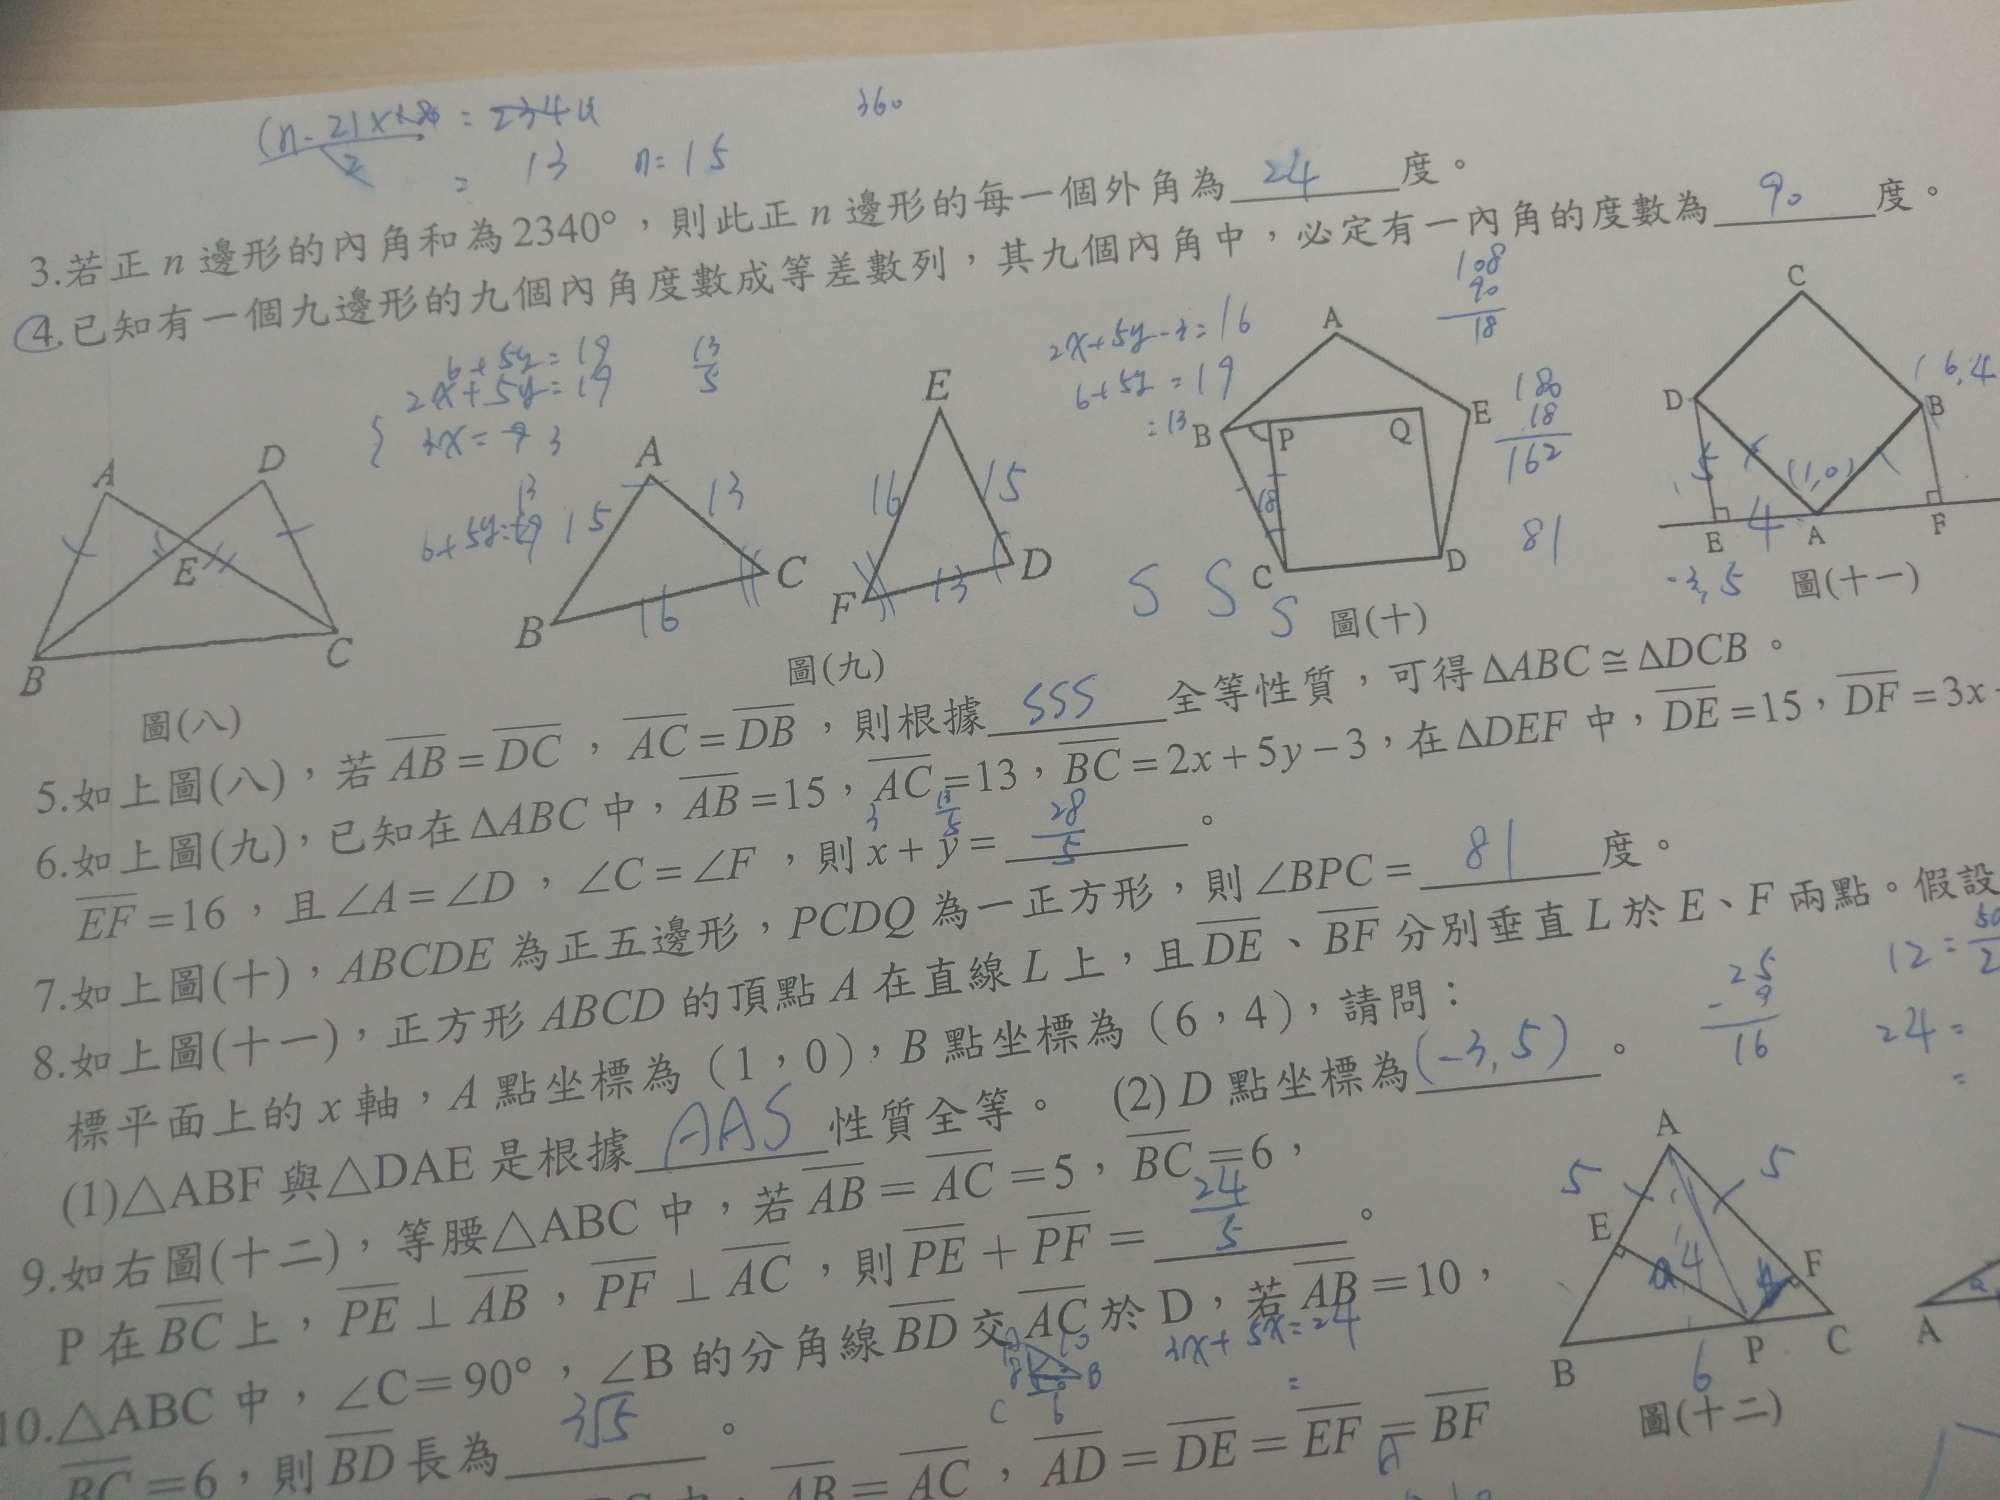 (n-2)×180 = 2340
360
2
= 13 n=15
3.若正 n 邊形的內角和為2340°，則此正 n 邊形的每一個外角為 24 度。
4.已知有一個九邊形的九個內角度數成等差數列，其九個內角中，必定有一內角的度數為 90 度。
6+5y=19
2x+5y=19
13
5
2x+5y-3=16
6+5y=19
=13
108
90
18
180
18
162
81
A
D
E
B
C
圖(八)
A
15
13
B
16
C
E
16
15
F
13
D
圖(九)
A
B
P
Q
E
18
C
D
圖(十)
C
D
B
6,4
5
(1,0)
E
4
A
F
-3,5
圖(十一)
S S S
5.如上圖(八)，若 AB = DC，AC = DB，則根據 SSS 全等性質，可得ΔABC≅ΔDCB。
6.如上圖(九)，已知在ΔABC 中，AB=15，AC=13，BC=2x+5y−3，在ΔDEF 中，DE=15，DF=3x
3
13
5
EF=16，且∠A=∠D，∠C=∠F，則 x+y= 28/5 。
7.如上圖(十)，ABCDE 為正五邊形，PCDQ 為一正方形，則∠BPC= 81 度。
8.如上圖(十一)，正方形 ABCD 的頂點 A 在直線 L 上，且DE、BF 分別垂直 L 於 E、F 兩點。假設
標平面上的 x 軸，A 點坐標為 (1，0)，B 點坐標為 (6，4)，請問：
(1)△ABF 與△DAE 是根據 AAS 性質全等。 (2) D 點坐標為 (-3,5) 。
25
- 9
16
24=
9.如右圖(十二)，等腰△ABC 中，若 AB = AC =5，BC =6，
P 在 BC 上，PE ⊥ AB，PF ⊥ AC，則 PE + PF = 24/5 。
10.△ABC 中，∠C=90°，∠B 的分角線 BD 交 AC 於 D，若 AB =10，
3x+5x=24
BC =6，則 BD 長為 3√5 。
A
5
5
E
4
F
B
6
P
C
圖(十二)
A
AB = AC，AD = DE = EF = BF